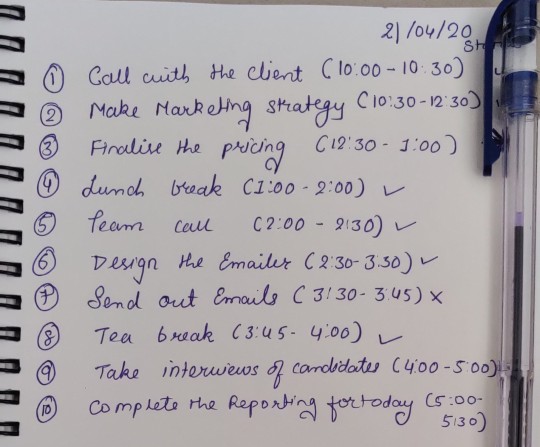 21/04/20
① Call with the Client (10:00 - 10:30)
② Make Marketing strategy (10:30-12:30)
③ Finalise the pricing (12:30 - 1:00)
④ Lunch break (1:00 - 2:00) ✓
⑤ Team call (2:00 - 2:30) ✓
⑥ Design the Emailer (2:30-3:30) ✓
⑦ Send out Emails (3:30 - 3:45) ×
⑧ Tea break (3:45 - 4:00) ✓
⑨ Take interviews of candidates (4:00 - 5:00)
⑩ Complete the Reporting for today (5:00-
5:30)